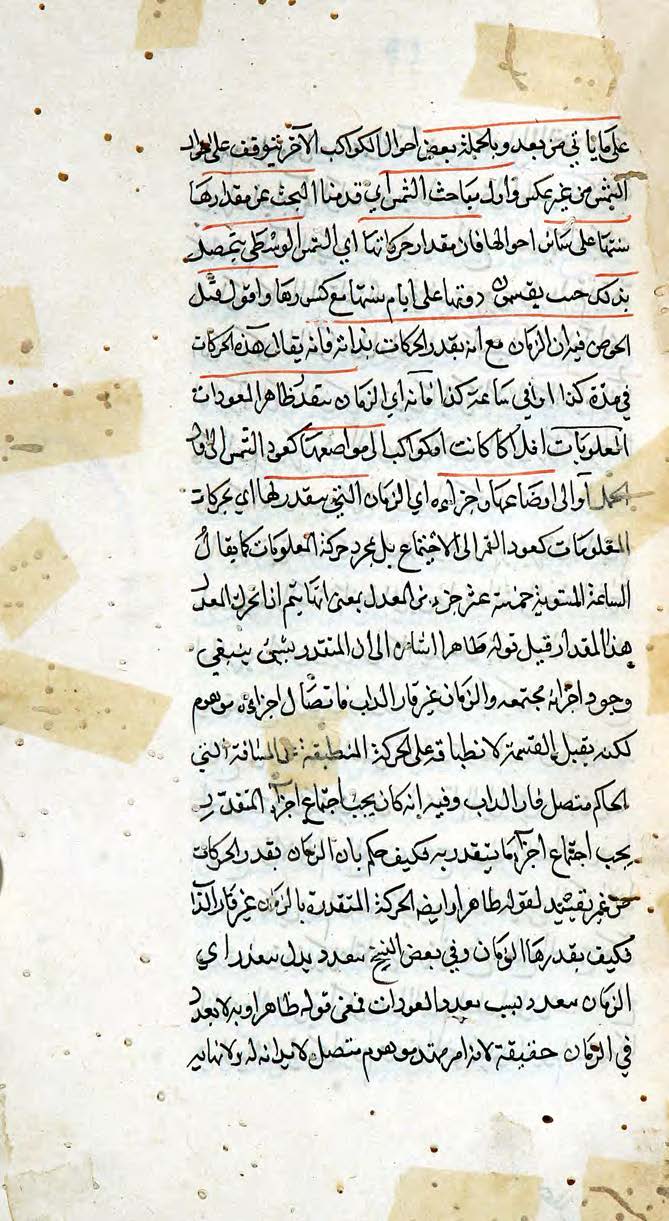 على ما يأتي من بعد وبالجملة بعض احوال الكواكب الآخر يتوقف على احوال
الشمس من غير عكس واول مباحث الشمس اي قدمنا البحث عن مقدارها
سنتها على سائر احوالها فان مقدار حركاتها اي الشمس الوسطى يتحصل
بذلك حيث يقسمون دورتها على ايام سنتها مع كسورها واقول قبل
الخوض فيه ان الزمان مع انه يقدر الحركات بذاته فانه يقال هذه الحركات
في مدة كذا او في ساعة كذا فانه اي الزمان يتقدر ظاهرا لعودات
المعلومات افلاكا كانت او كواكب الى مواضعها كعود الشمس الى اول
الحمل او الى اوضاعها واجزاءه اي الزمان التي يتقدر بها اي بحركات
المعلومات كعود القمر الى الاجتماع بل بمجرد حركة المعلومات كما يقال
الساعة المستوية خمسة عشر جزء من المعدل بمعنى انها يتم اذا تحرك المعدل
هذا المقدار قيل قوله ظاهرا اشارة الى ان المتقدر بشئ ينبغي
وجود اجزائه مجتمعه والزمان غير قار الذات فاتصال اجزاءه موهوم
لكنه يقبل القسمة لانطباقه على الحركة المنطبقة على المسافة التي
الحاكم متصل قار الذات وفيه انه كان يجب اجتماع اجزاء المتقدر
يجب اجتماع اجزاء ما يتقدر به فكيف حكم بان الزمان يقدر الحركات
من غير تقييد لقوله ظاهرا وايضه الحركة المتقدرة بالزمان غير قار الذا
فكيف يقدرها الزمان وفي بعض النسخ متعدد بدل متقدر اي
الزمان متعدد بسبب تعدد العودات فمعنى قوله ظاهرا وبه لا تعدد
في الزمان حقيقة لانه امر ممتد موهوم متصل لا بداية له ولا نهاية